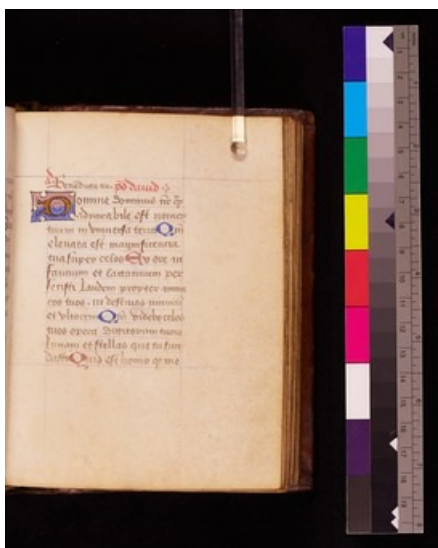 Benedicta tu. ps dauid
Domine dominus nr̄ qͣ
admirabile est nomen
tuum in vniuersa terra Qm̄
eleuata est magnificentia
tua super celos Ex ore in
fantium et lactantium per
fecisti laudem propter inimi
cos tuos ut destruas inimicū
et vltorem Qm̄ videbo celos
tuos opera digitorum tuorū
lunam et stellas que tu fun
dasti Quid est homo qͩ me